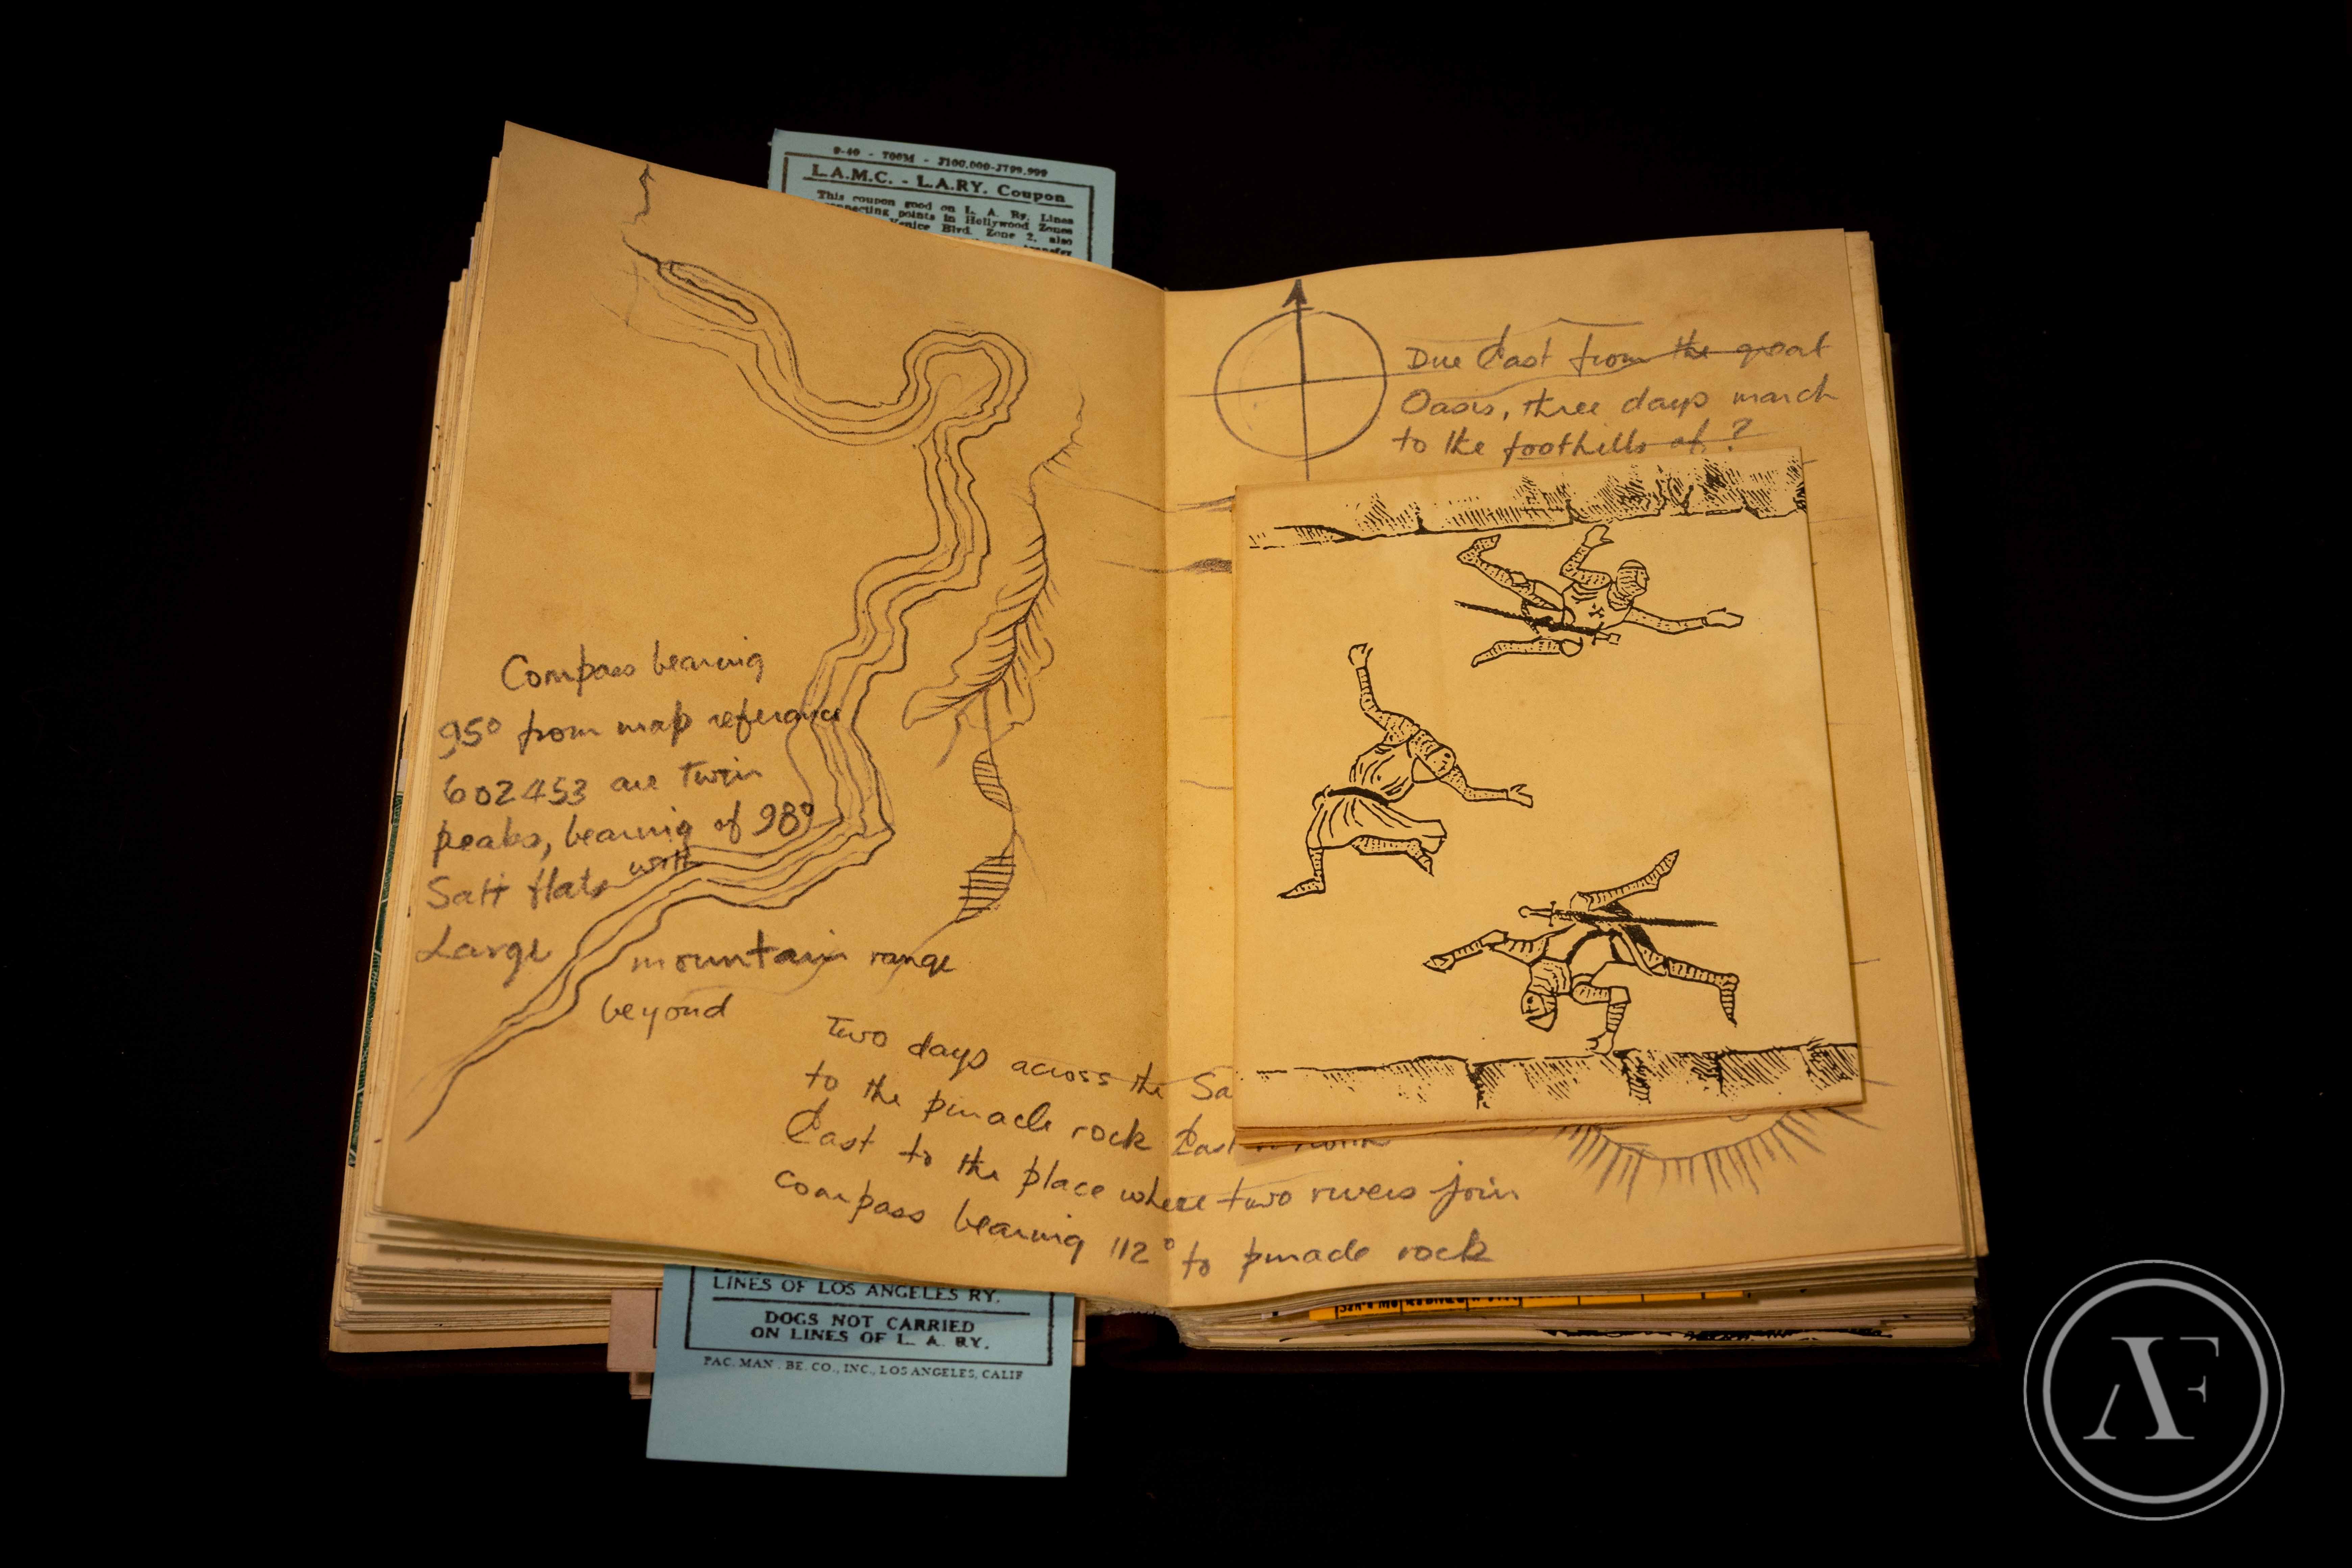 9-40 - 700M - J100,000-J799,999
L.A.M.C. - L.A.RY. Coupon
This coupon good on L. A. Ry. Lines
connecting points in Hollywood Zones
Venice Blvd. Zone 2, also
transfer
Compass bearing
95° from map reference
602453 are Twin
peaks, bearing of 98°
Salt flats with
Large mountain range
beyond
Due East from the great
Oasis, three days march
to the foothills of ?
Two days across the Sa
to the pinacle rock East
East to the place where two rivers join
compass bearing 112° to pinacle rock
LINES OF LOS ANGELES RY.
DOGS NOT CARRIED
ON LINES OF L. A. RY.
PAC. MAN. BE. CO., INC., LOS ANGELES, CALIF
AF